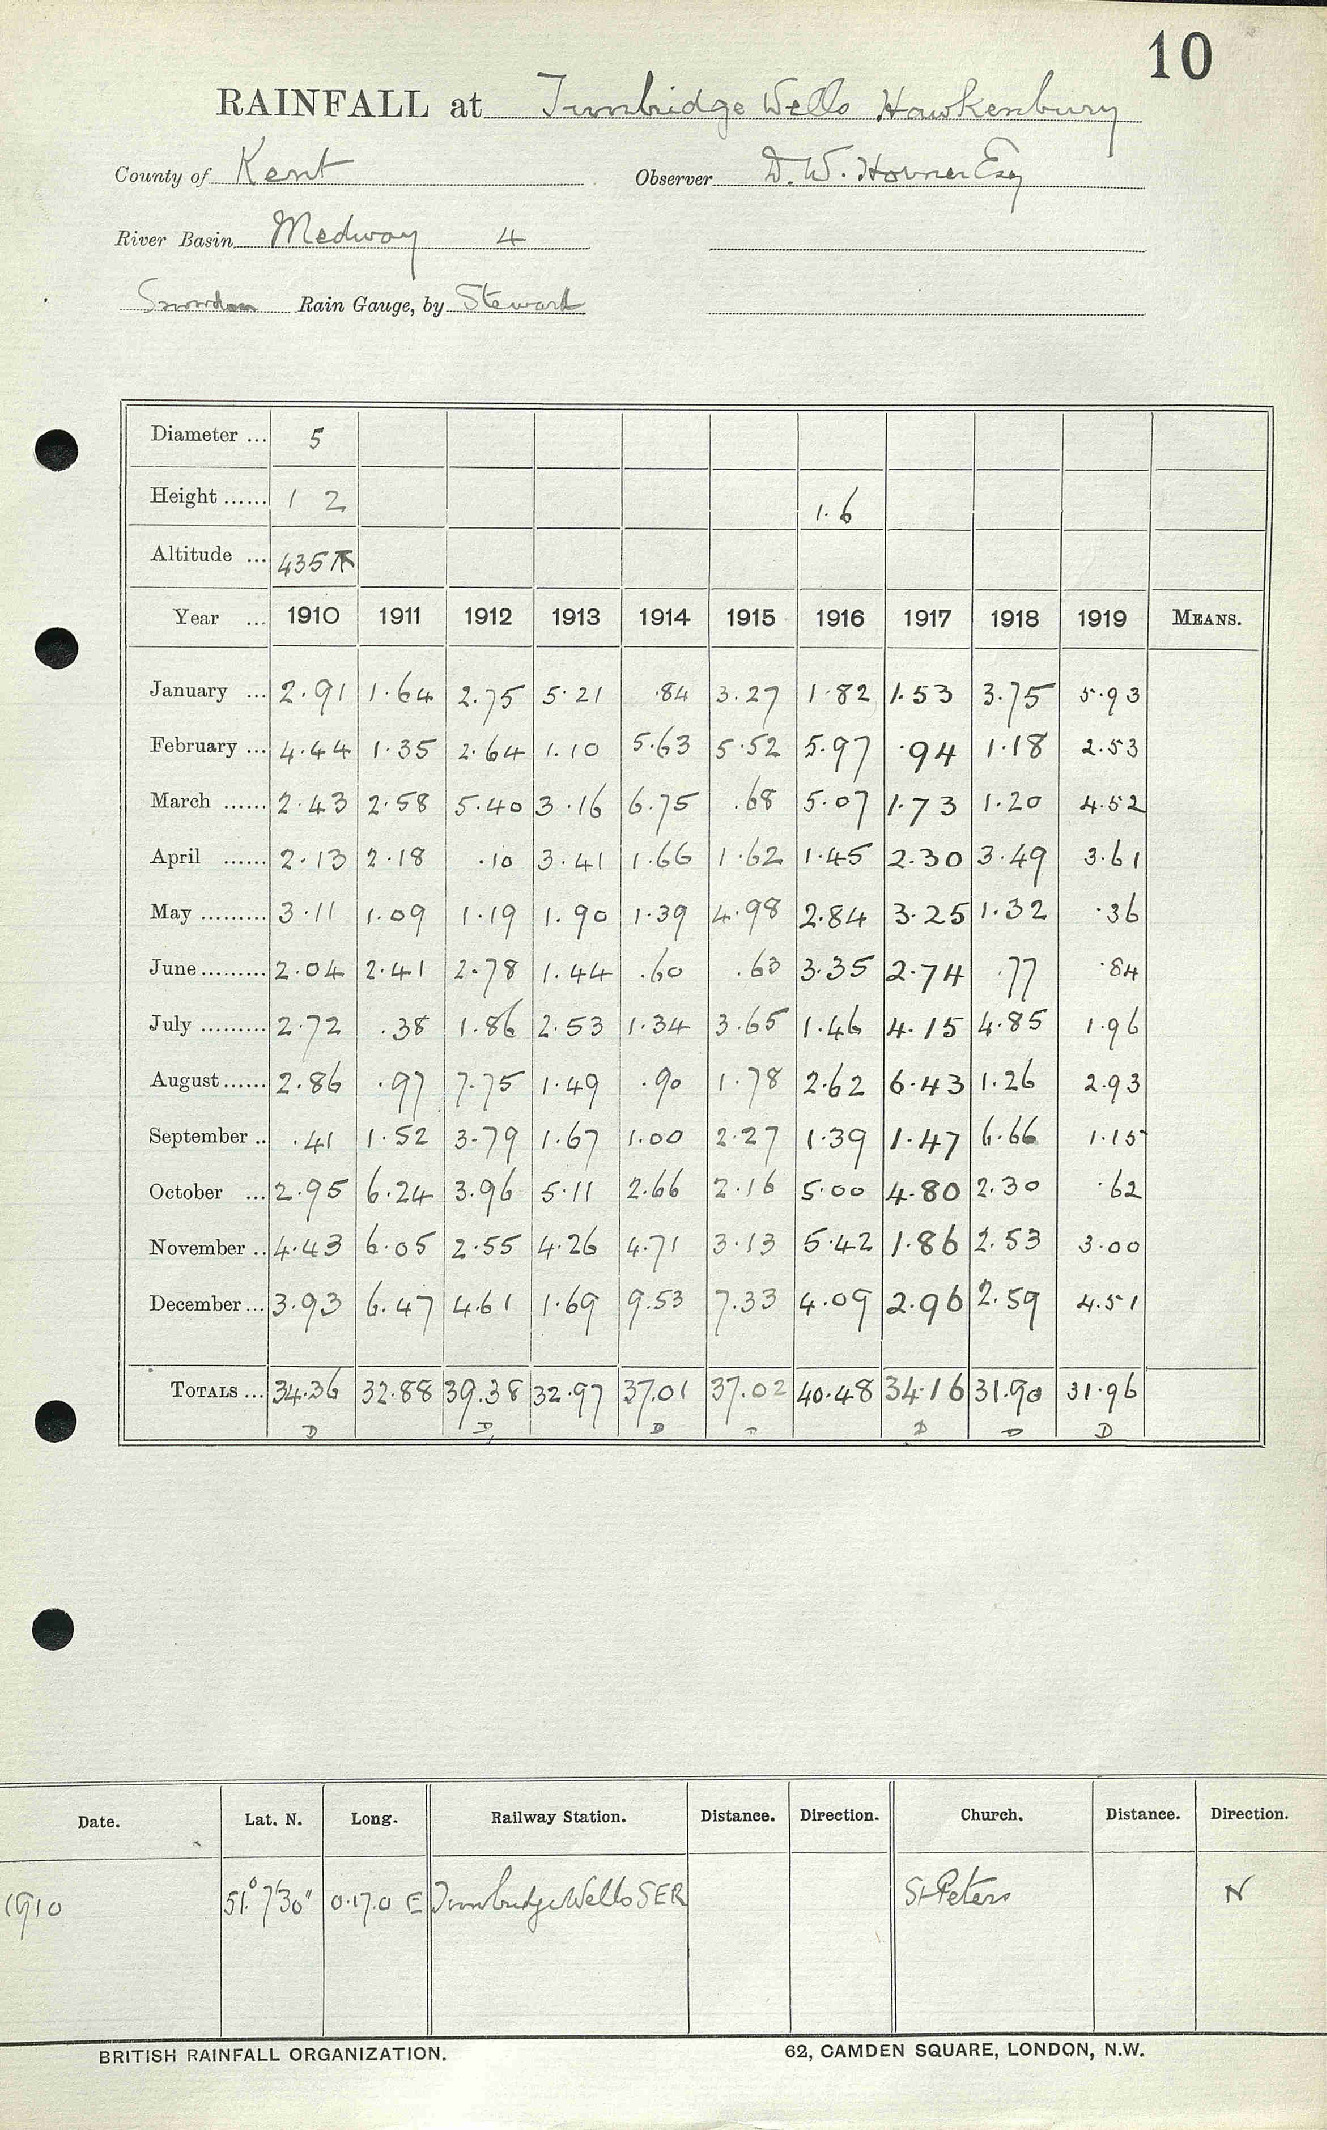 10
RAINFALL at Tunbridge Wells Hawkenbury
County of Kent Observer D. W. Horner Esq
River Basin Medway 4
Snowdon Rain Gauge, by Stewart
Diameter ... 5
Height ...... 1 2 1.6
Altitude ... 435
Year ... 1910 1911 1912 1913 1914 1915 1916 1917 1918 1919 MEANS.
January ... 2.91 1.64 2.75 5.21 .84 3.27 1.82 1.53 3.75 5.93
February ... 4.44 1.35 2.64 1.10 5.63 5.52 5.97 .94 1.18 2.53
March ...... 2.43 2.58 5.40 3.16 6.75 .68 5.07 1.73 1.20 4.52
April ...... 2.13 2.18 .10 3.41 1.66 1.62 1.45 2.30 3.49 3.61
May ......... 3.11 1.09 1.19 1.90 1.39 4.98 2.84 3.25 1.32 .36
June ......... 2.04 2.41 2.78 1.44 .60 .63 3.35 2.74 .77 .84
July ......... 2.72 .38 1.86 2.53 1.34 3.65 1.46 4.15 4.85 1.96
August ...... 2.86 .97 7.75 1.49 .90 1.78 2.62 6.43 1.26 2.93
September .. .41 1.52 3.79 1.67 1.00 2.27 1.39 1.47 6.66 1.15
October ... 2.95 6.24 3.96 5.11 2.66 2.16 5.00 4.80 2.30 .62
November .. 4.43 6.05 2.55 4.26 4.71 3.13 5.42 1.86 2.53 3.00
December ... 3.93 6.47 4.61 1.69 9.53 7.33 4.09 2.96 2.59 4.51
TOTALS ... 34.36 32.88 39.38 32.97 37.01 37.02 40.48 34.16 31.90 31.96
D D D D D D
Date. Lat. N. Long. Railway Station. Distance. Direction. Church. Distance. Direction.
1910 51° 7'30" 0.17.0 E Tunbridge Wells SER St Peters N
BRITISH RAINFALL ORGANIZATION. 62, CAMDEN SQUARE, LONDON, N.W.